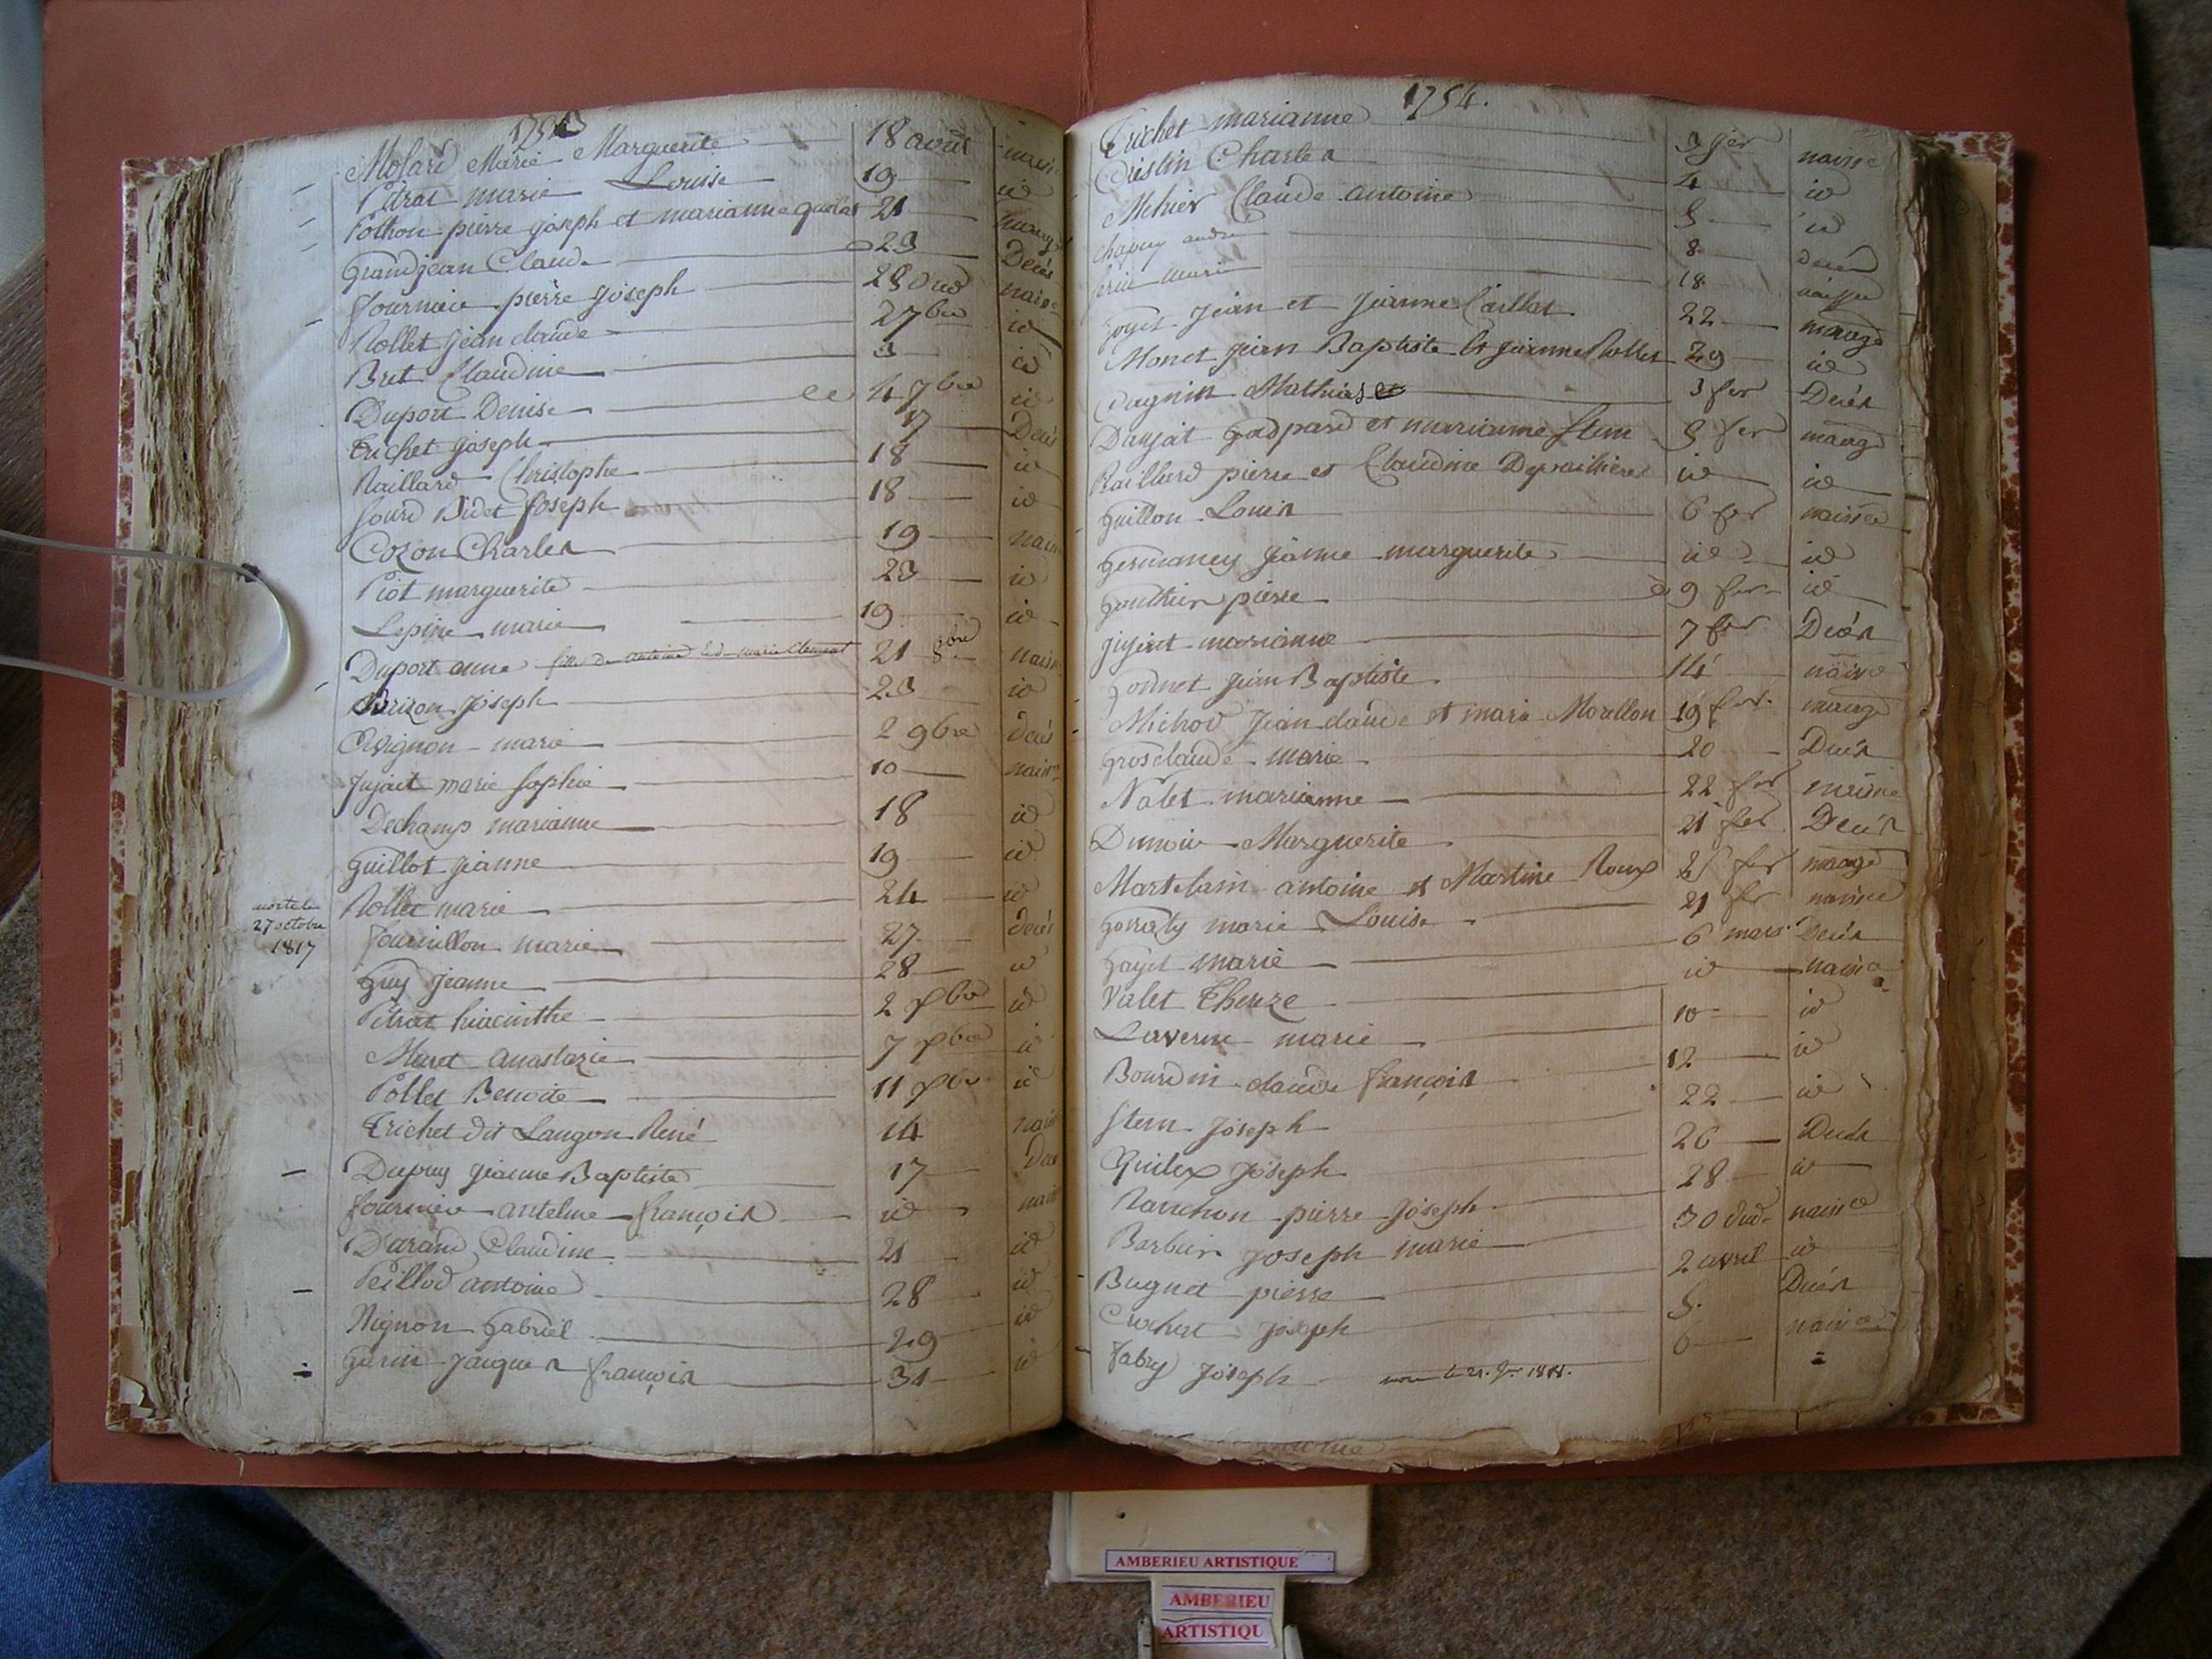 1753
Molard Marie Marguerite 18 août naisse
Pitrat marie Louise 19 id
Pothon pierre joseph et marianne 21
Grandjean Claude 23 Decès
fournier pierre joseph 28 dud naisse
Rollet jean claude 2 7bre id
Bret Claudine 3 id
Duport Denise 4 7bre id
Trichet joseph 17 Decès
Raillard Christophe 18 id
Bidet Joseph 18 id
Cozon Charles 19 naisse
Piot marguerite 23 id
Lepine marie 19 id
Duport anne fille de antoine et de marie Clement 21 8bre naisse
Brizon Joseph 23 id
Ovignon marie 2 9bre decès
Jujait marie sophie 10 naisse
Dechamp marianne 18 id
Guillot jeanne 19 id
Rollet marie 24 id
morte le
27 octobre
1817
fournillon marie 27 decès
Guy Jeanne 28 id
Pitrat hiacinthe 2 Xbre id
Muret anastazie 7 Xbre id
Pollet Benoite 11 Xbre id
Trichet dit Langon René 14 naiss
Dupuy jeanne Baptiste 17 Dece
fournier antelme françois id naiss
Darand Claudine 21 id
Peillod antoine 28 id
Nignon Gabriel 29 id
Gurin Jacques françois 31 id
1754.
Trichet marianne 3 jer naisse
Cristin Charles 4 id
Mehier Claude antoine 5 id
Chapuy andré 8 decés
marie 18 naisse
Goyet Jean et Jeanne Caillat 22 mariage
Monet jean Baptiste et jeanne Rollet 29 id
Cagnin Mathias 3 fer Decés
Daujat Gaspard et marianne Stem 5 fer mariage
Raillard pierre et Claudine id id
Guillon Louis 6 fer naisse
Germaney jeanne marguerite id id
Gauthier pierre 9 fer id
jujait marianne 7 fer Decés
Gonnet jean Baptiste 14 naisse
Michod Jean claude et marie Morellon 19 fer mariage
Grosclaude marie 20 Decés
Nalet marianne 22 fer naisse
Dumoir Marguerite 21 fer Decés
Martelain antoine et Martine Roux 25 fer mariage
marie Louise 21 fer naisse
Goyet marie 6 mars Decés
Valet Thereze id naisse
Laverne marie 10 id
Bourdin claude françois 12 id
Stem Joseph 22 id
Guilex Joseph 26 Decés
Ranchon pierre Joseph 28 id
Barbier joseph marie 30 dud naisse
Bugnet pierre 2 avril id
Crochet Joseph 5 Decés
Fabry Joseph 6 naisse
AMBERIEU ARTISTIQUE
AMBERIEU
ARTISTIQU